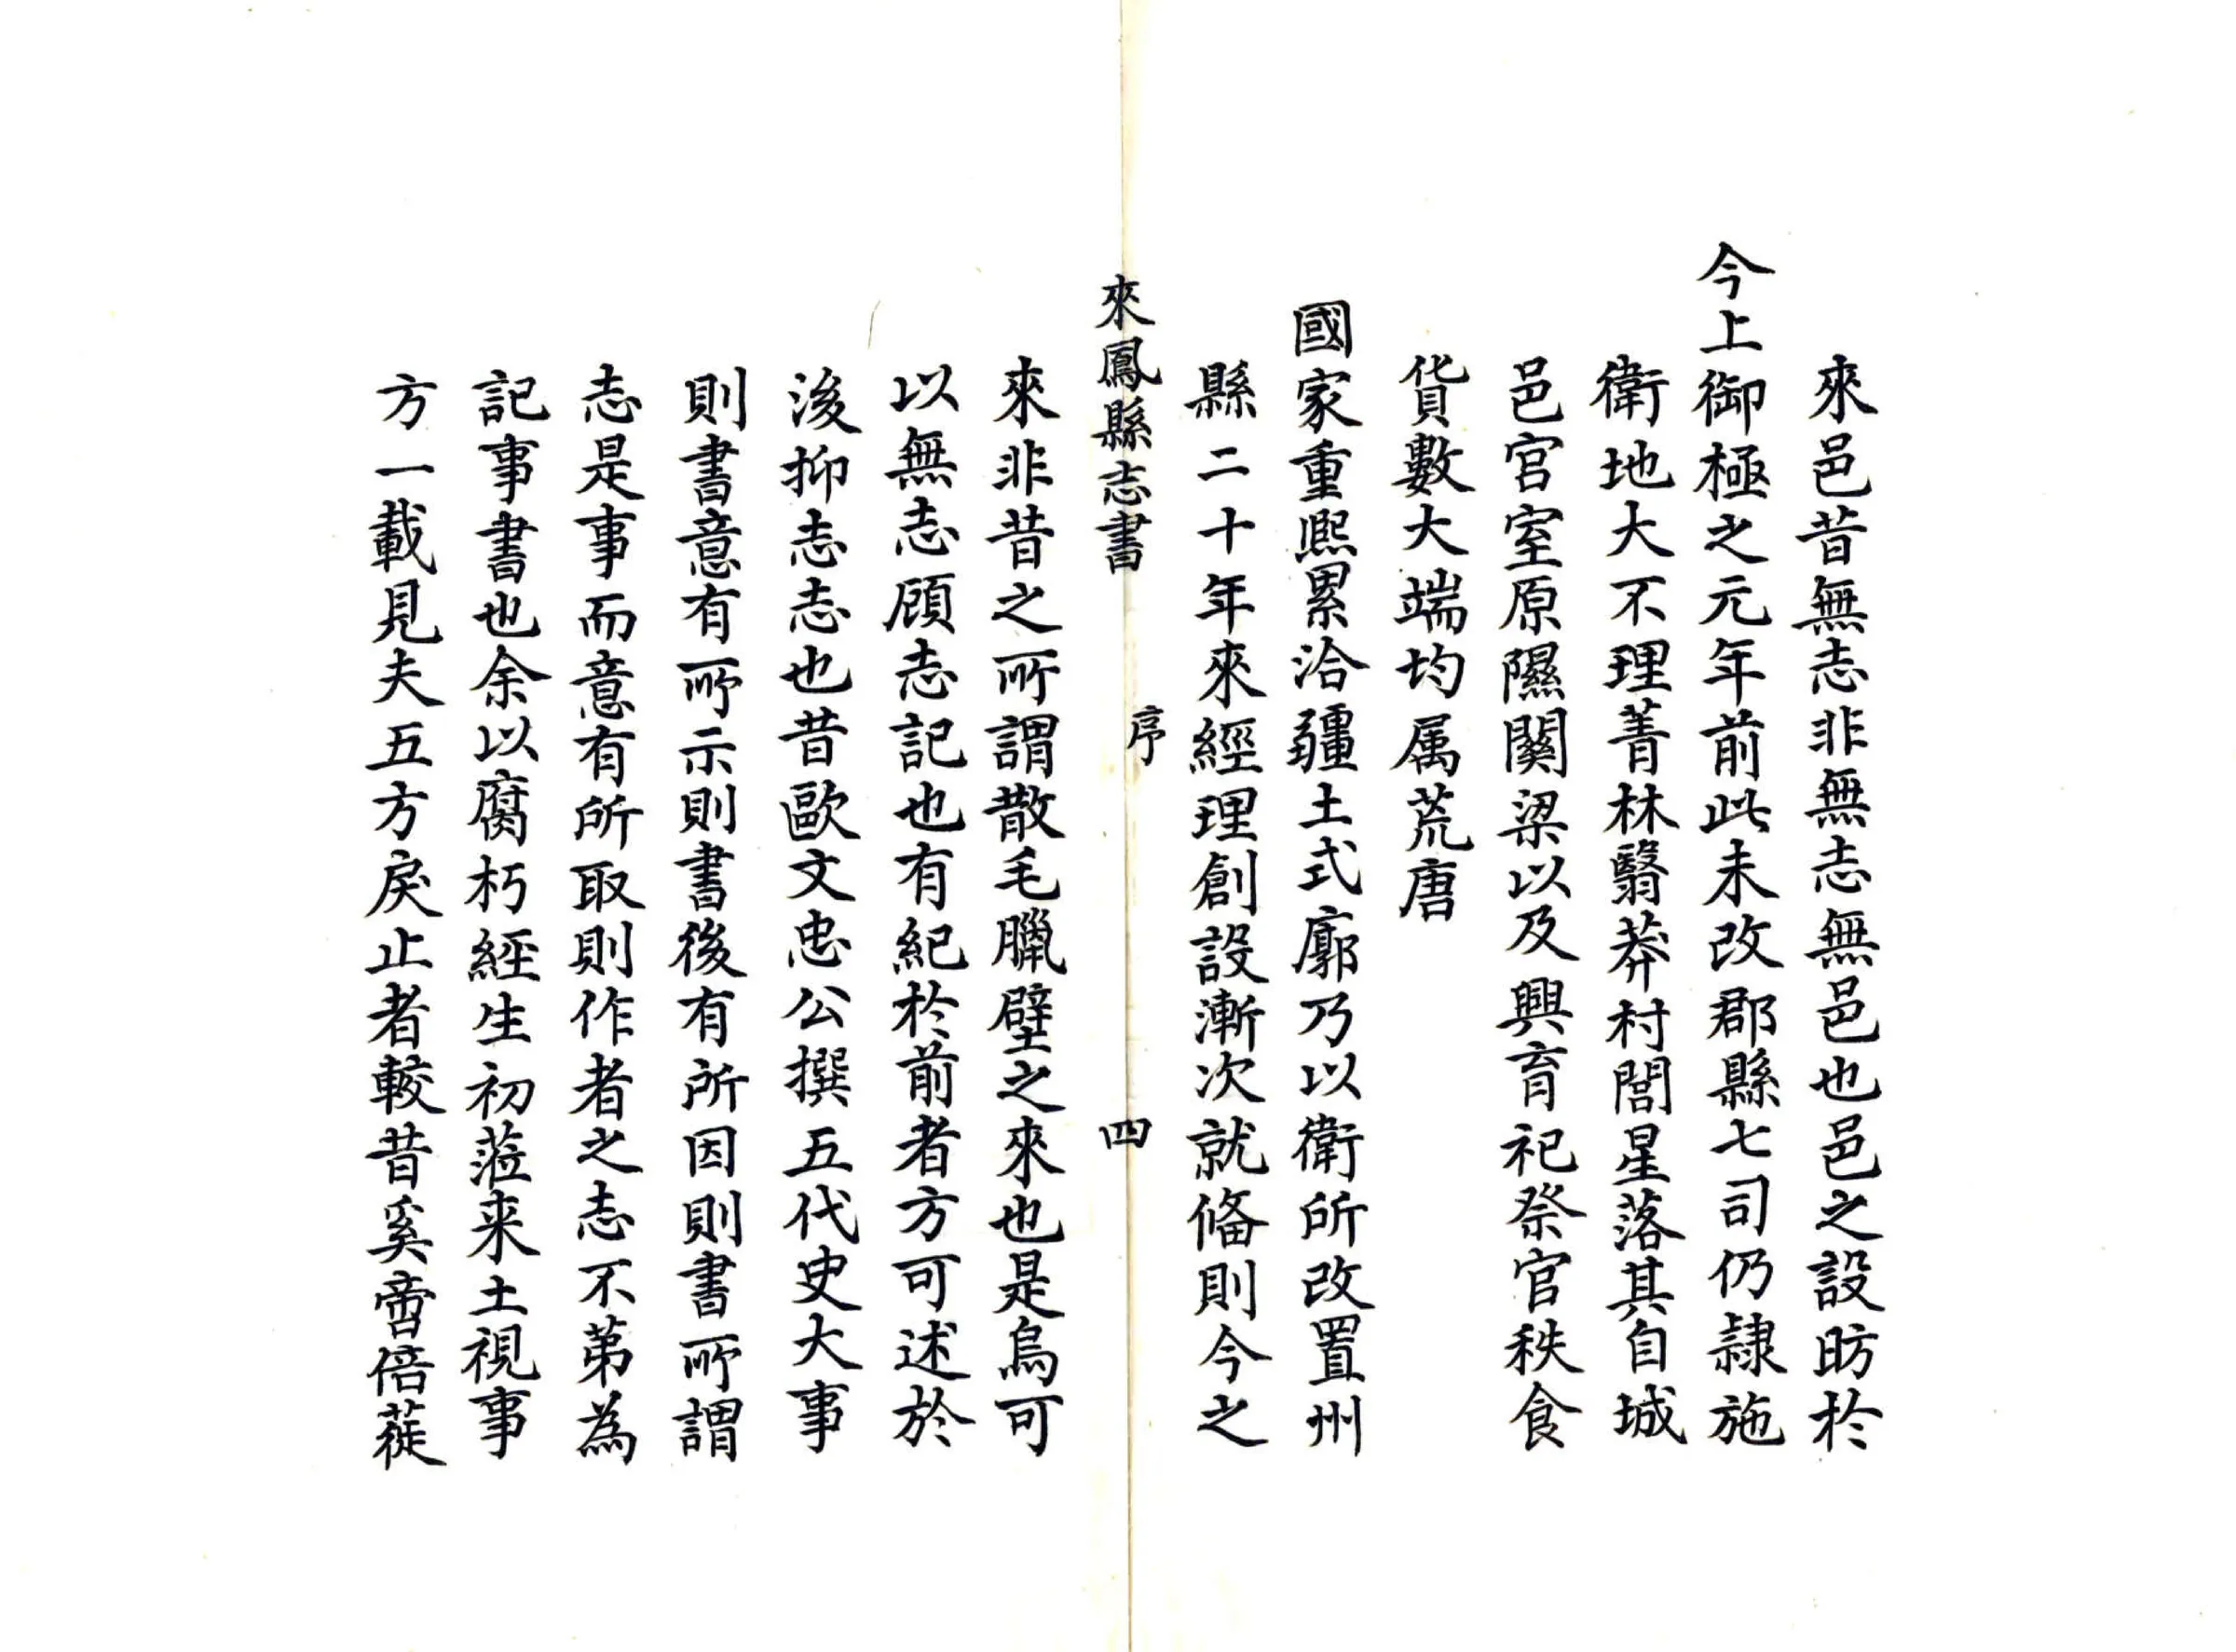 來邑昔無志非無志無邑也邑之設昉於
今上御極之元年前此未改郡縣七司仍隷施
衛地大不理菁林翳莽村閭星落其自城
邑宫室原隰關梁以及興育祀祭官秩食
貨數大端均属荒唐
國家重熈累洽疆土式廓乃以衛所改置州
縣二十年來經理創設漸次就俻則今之
來鳳縣志書 序 四
來非昔之所謂散毛臘壁之來也是烏可
以無志顧志記也有紀於前者方可述於
後抑志志也昔歐文忠公撰五代史大事
則書意有所示則書後有所因則書所謂
志是事而意有所取則作者之志不第為
記事書也余以腐朽經生初蒞来土視事
方一載見夫五方戾止者較昔奚啻倍蓰